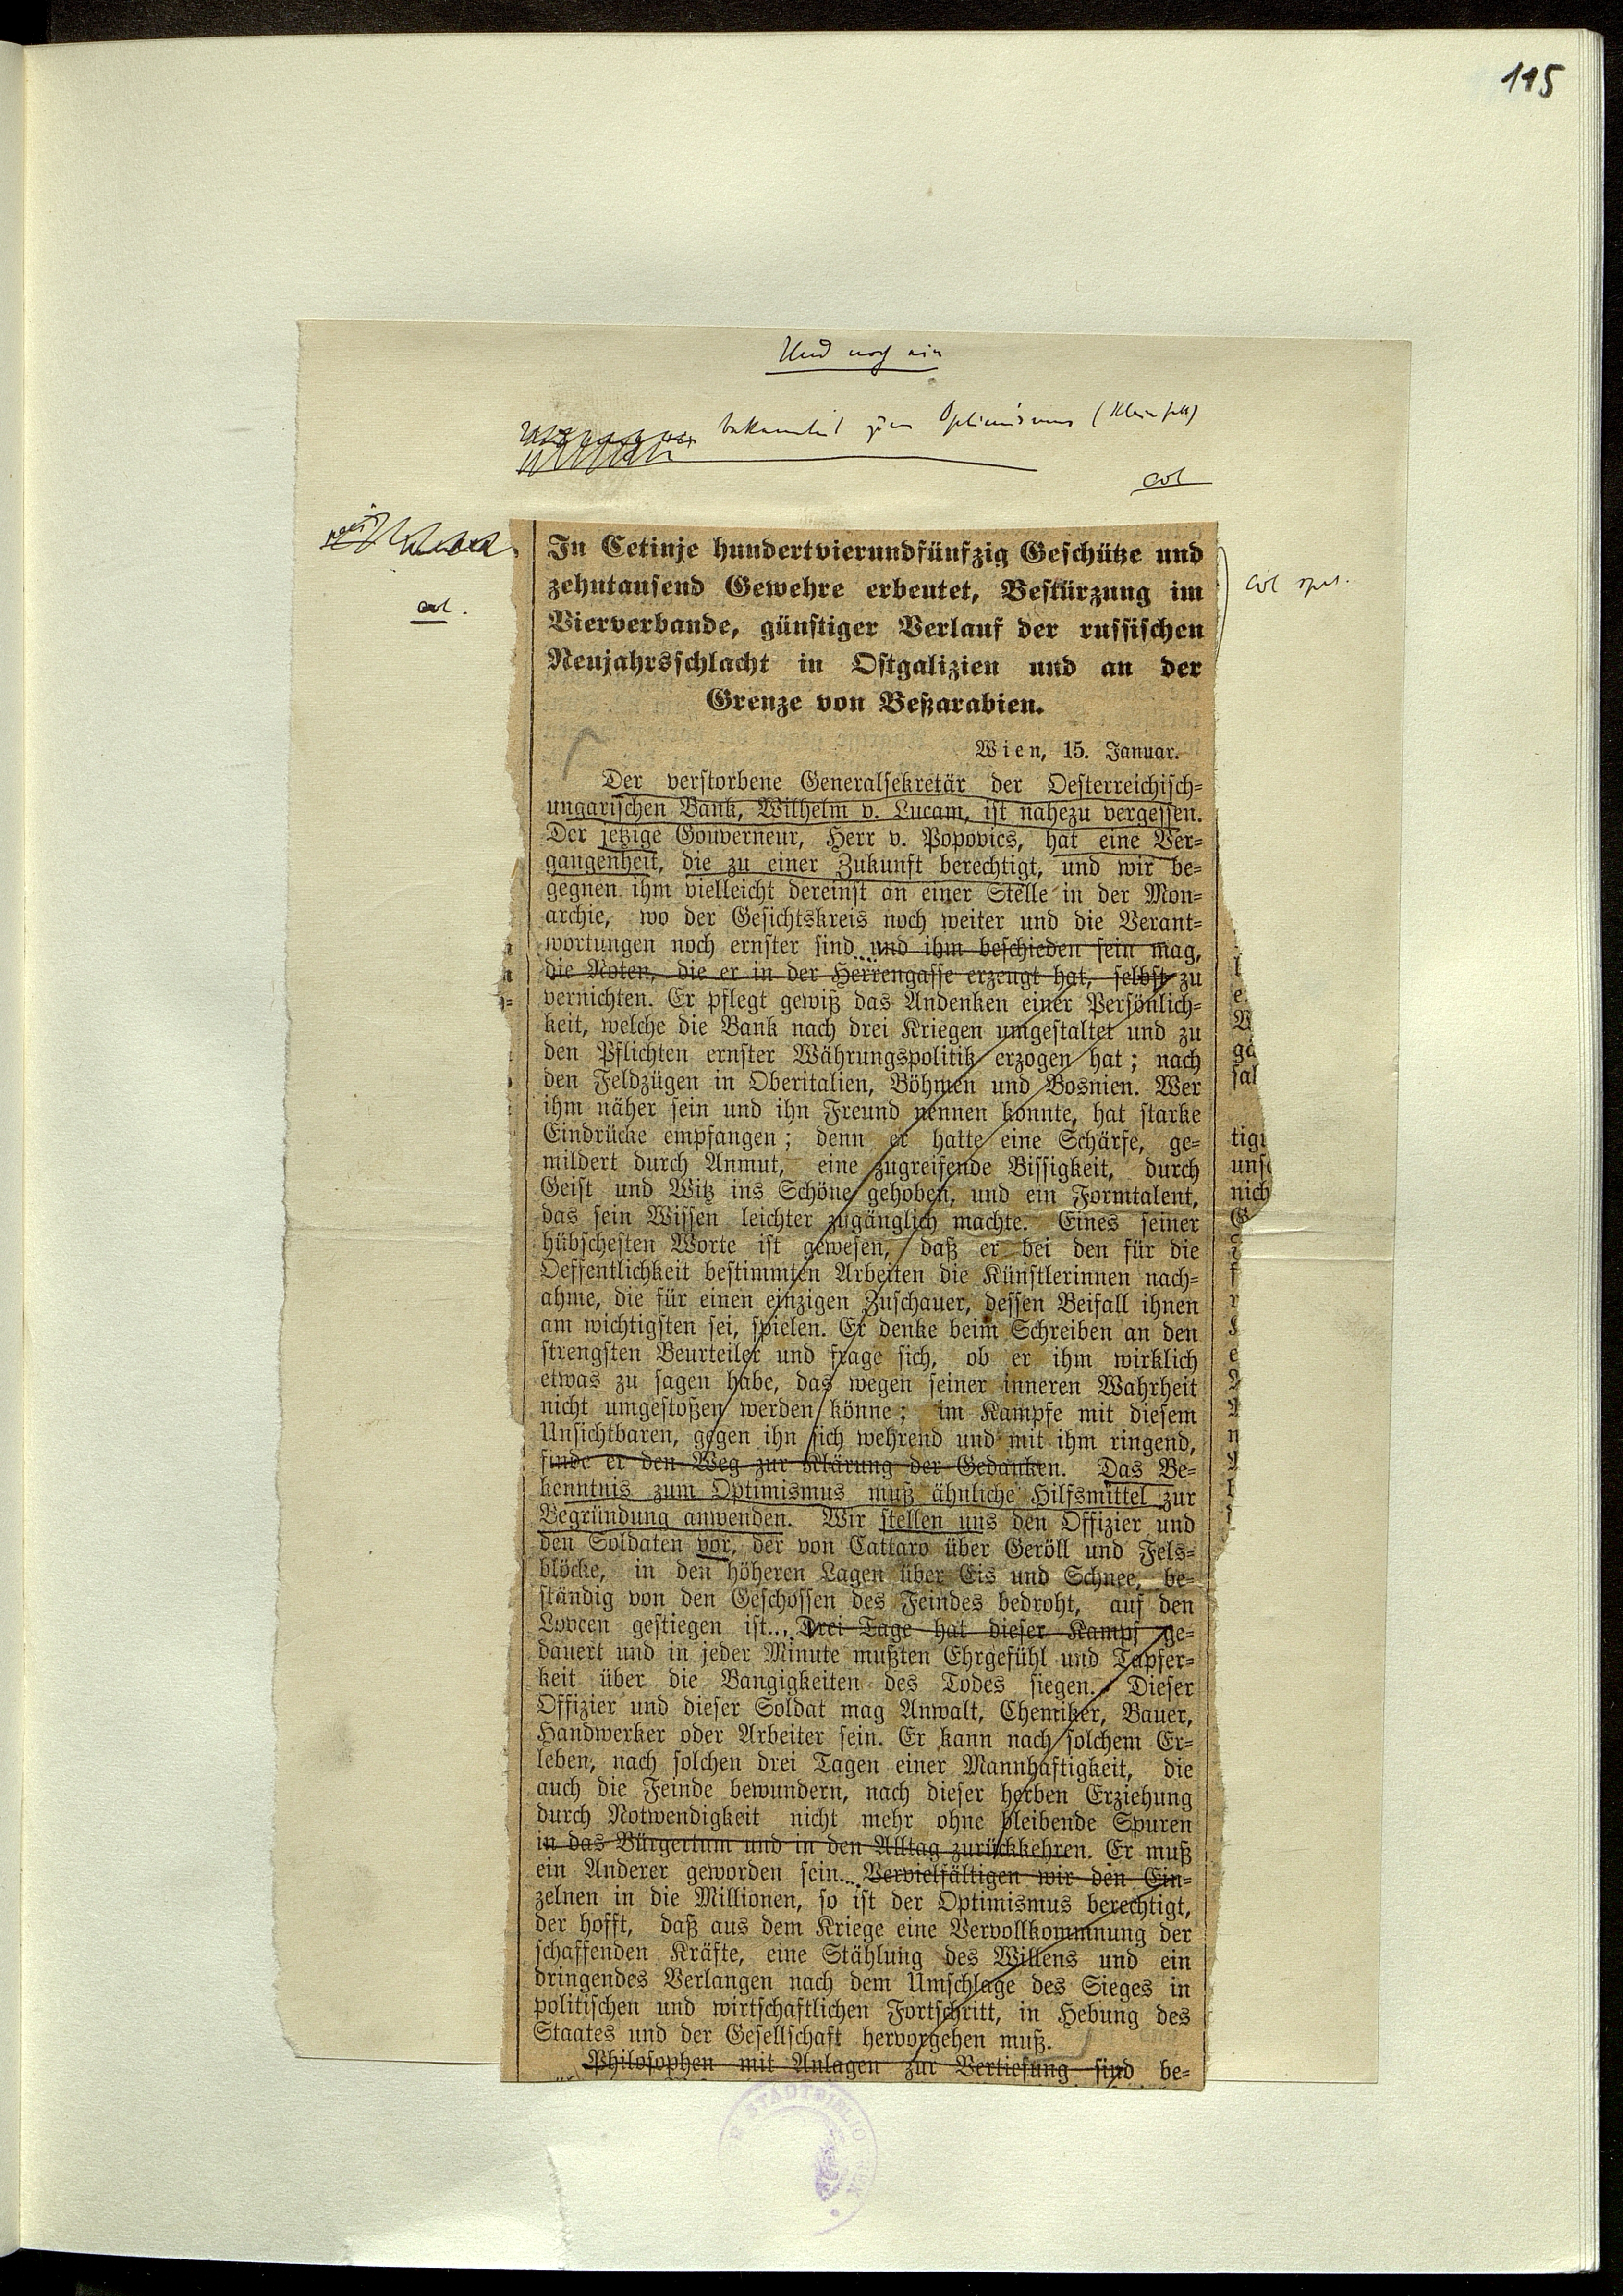 115
Und noch ein
bekenntnis zum Optimismus
col
col.
col
In Cetinje hundertvierundfünfzig Geschütze und
zehntausend Gewehre erbeutet, Bestürzung im
Vierverbande, günstiger Verlauf der russischen
Neujahrsschlacht in Ostgalizien und an der
Grenze von Beßarabien.
Wien, 15. Januar.
Der verstorbene Generalsekretär der Oesterreichisch-
ungarischen Bank, Wilhelm v. Lucam, ist nahezu vergessen.
Der jetzige Gouverneur, Herr v. Popovics, hat eine Ver-
gangenheit, die zu einer Zukunft berechtigt, und wir be-
gegnen ihm vielleicht dereinst an einer Stelle in der Mon-
archie, wo der Gesichtskreis noch weiter und die Verant-
wortungen noch ernster sind und ihm beschieden sein mag,
die Noten, die er in der Herrengasse erzeugt hat, selbst zu
vernichten. Er pflegt gewiß das Andenken einer Persönlich-
keit, welche die Bank nach drei Kriegen umgestaltet und zu
den Pflichten ernster Währungspolitik erzogen hat; nach
den Feldzügen in Oberitalien, Böhmen und Bosnien. Wer
ihm näher sein und ihn Freund nennen konnte, hat starke
Eindrücke empfangen; denn er hatte eine Schärfe, ge-
mildert durch Anmut, eine zugreifende Bissigkeit, durch
Geist und Witz ins Schöne gehoben, und ein Formtalent,
das sein Wissen leichter zugänglich machte. Eines seiner
hübschesten Worte ist gewesen, daß er bei den für die
Oeffentlichkeit bestimmten Arbeiten die Künstlerinnen nach-
ahme, die für einen einzigen Zuschauer, dessen Beifall ihnen
am wichtigsten sei, spielen. Er denke beim Schreiben an den
strengsten Beurteiler und frage sich, ob er ihm wirklich
etwas zu sagen habe, das wegen seiner inneren Wahrheit
nicht umgestoßen werden könne; im Kampfe mit diesem
Unsichtbaren, gegen ihn sich wehrend und mit ihm ringend,
finde er den Weg zur Klärung der Gedanken. Das Be-
kenntnis zum Optimismus muß ähnliche Hilfsmittel zur
Begründung anwenden. Wir stellen uns den Offizier und
den Soldaten vor, der von Cattaro über Geröll und Fels-
blöcke, in den höheren Lagen über Eis und Schnee, be-
ständig von den Geschossen des Feindes bedroht, auf den
Lovcen gestiegen ist... Drei Tage hat dieser Kampf ge-
dauert und in jeder Minute mußten Ehrgefühl und Tapfer-
keit über die Bangigkeiten des Todes siegen. Dieser
Offizier und dieser Soldat mag Anwalt, Chemiker, Bauer,
Handwerker oder Arbeiter sein. Er kann nach solchem Er-
leben, nach solchen drei Tagen einer Mannhaftigkeit, die
auch die Feinde bewundern, nach dieser herben Erziehung
durch Notwendigkeit nicht mehr ohne bleibende Spuren
in das Bürgertum und in den Alltag zurückkehren. Er muß
ein Anderer geworden sein... Vervielfältigen wir den Ein-
zelnen in die Millionen, so ist der Optimismus berechtigt,
der hofft, daß aus dem Kriege eine Vervollkommnung der
schaffenden Kräfte, eine Stählung des Willens und ein
dringendes Verlangen nach dem Umschlage des Sieges in
politischen und wirtschaftlichen Fortschritt, in Hebung des
Staates und der Gesellschaft hervorgehen muß.
Philosophen mit Anlagen zur Vertiefung sind be-